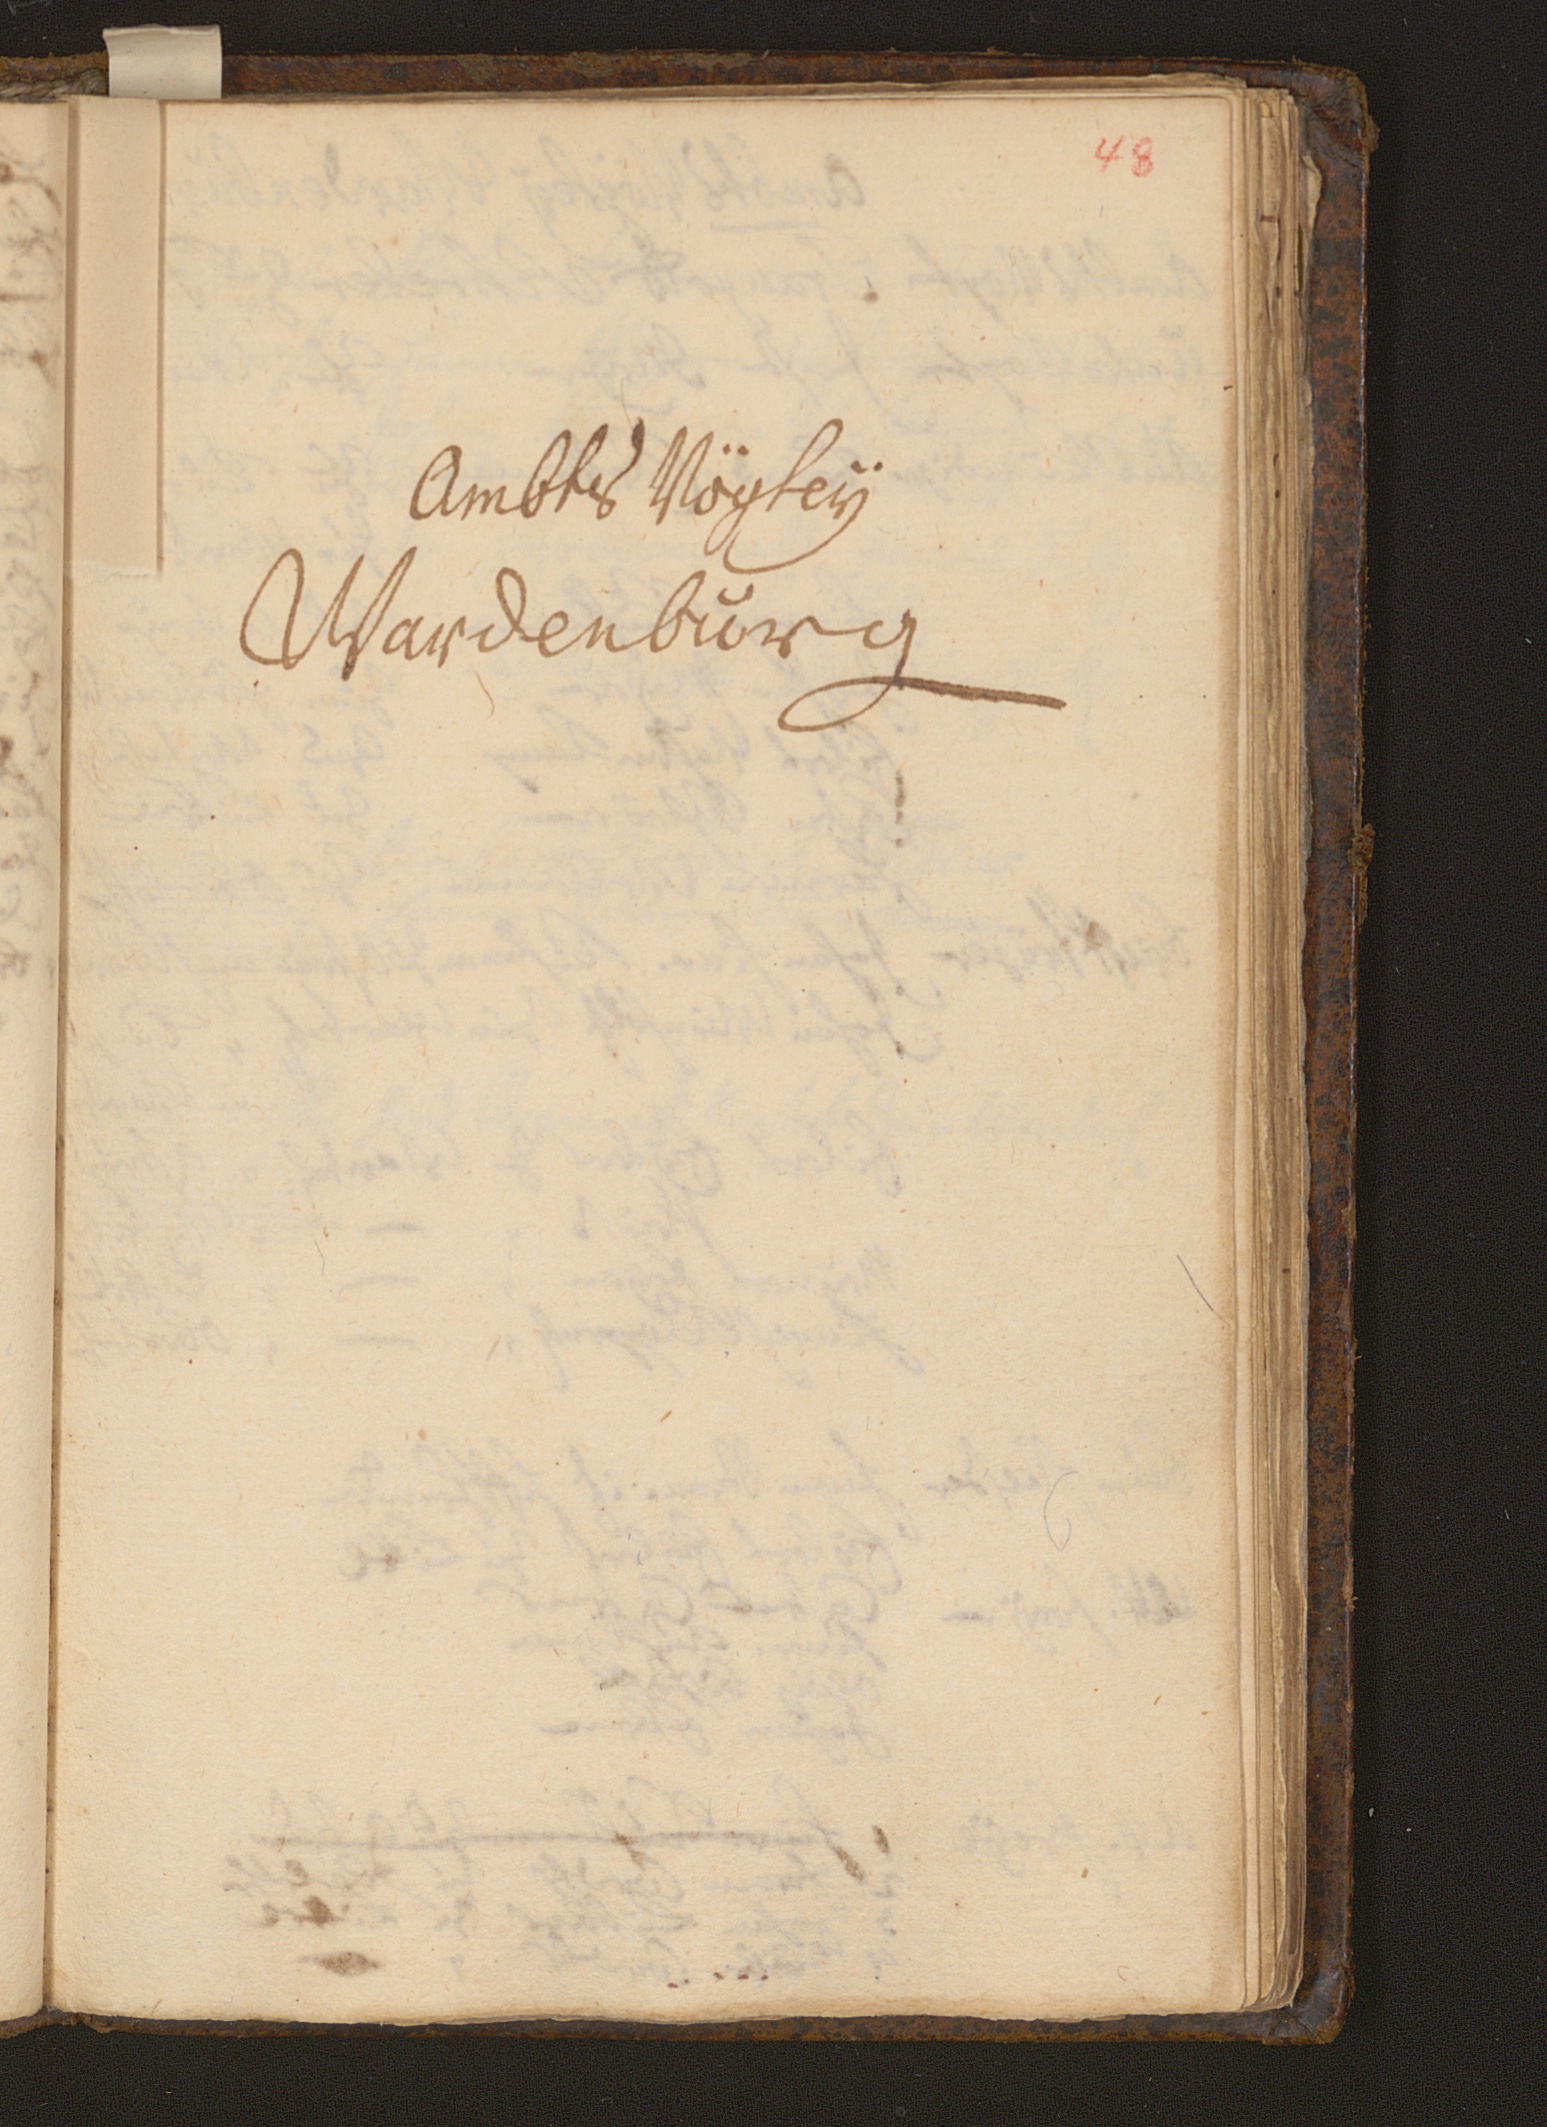 48
Ambts Vögteÿ
Wardenburg